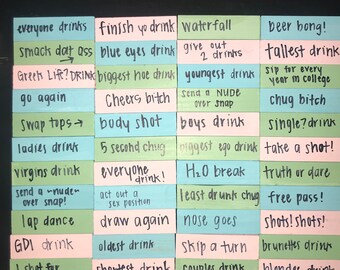 everyone drinks
finish yo drink
waterfall
beer bong!
smack dat ass
blue eyes drink
give out
2 drinks
tallest drink
Greek Life? DRINK
biggest hoe drink
youngest drink
sip for every
year in college
go again
Cheers bitch
send a NUDE
over snap
chug bitch
swap tops →
body shot
boys drink
single? drink
ladies drink
5 second chug
biggest ego drink
take a shot!
virgins drink
everyone
drink!
H2O break
truth or dare
send a ~nude~
over snap!
act out a
sex position
least drunk chug
free pass!
lap dance
draw again
nose goes
shots! shots!
GDI drink
oldest drink
skip a turn
brunettes drink
1 shot for
shortest drink
couples drink
blondes drink